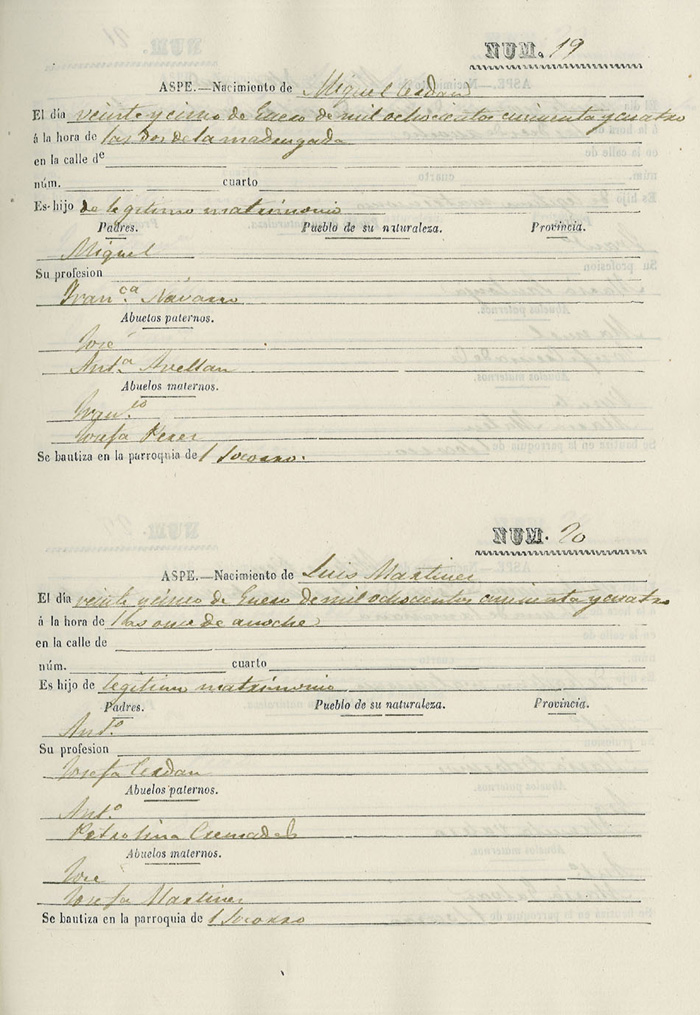 NUM. 19
ASPE.—Nacimiento de Miguel Cerdan
El día veinte y cinco de Enero de mil ochocientos cincuenta y cuatro
á la hora de las dos de la madrugada
en la calle de
núm. cuarto
Es hijo de legitimo matrimonio
Padres. Pueblo de su naturaleza. Provincia.
Miguel
Su profesion
Fran.ca Navarro
Abuelos paternos.
José
Ant.a Avellan
Abuelos maternos.
Fran.co
Josefa Perez
Se bautiza en la parroquia del Socorro.
NUM. 20
ASPE.—Nacimiento de Luis Martinez
El día veinte y cinco de Enero de mil ochocientos cincuenta y cuatro
á la hora de las once de anoche
en la calle de
núm. cuarto
Es hijo de legitimo matrimonio
Padres. Pueblo de su naturaleza. Provincia.
Ant.o
Su profesion
Josefa Cerdan
Abuelos paternos.
Ant.o
Petrolina Cremades
Abuelos maternos.
José
Josefa Martinez
Se bautiza en la parroquia del Socorro